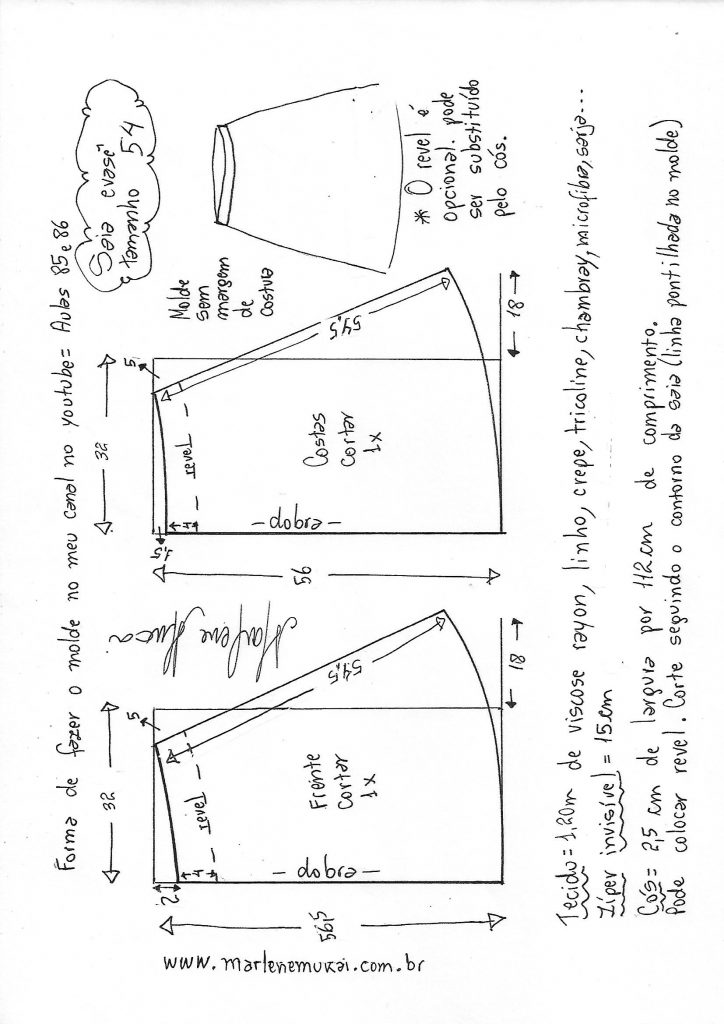 Forma de fazer o molde no meu canal no youtube= Aulas 85 e 86
Saia evasê
tamanho 54
Molde
sem
margem
de
costura
* O revel é
opcional. pode
ser substituído
pelo cós.
32
5
2
4
revel
54,5
Frente
Cortar
1x
dobra
56,5
18
Marlene Mukai
32
5
1,5
4
revel
54,5
Costas
Cortar
1x
dobra
56
18
www.marlenemukai.com.br
Tecido= 1,20m de viscose rayon, linho, crepe, tricoline, chambray, microfibra, sarja...
Zíper invisível = 15cm
Cós= 2,5 cm de largura por 112cm de comprimento.
Pode colocar revel. Corte seguindo o contorno da saia (linha pontilhada no molde)